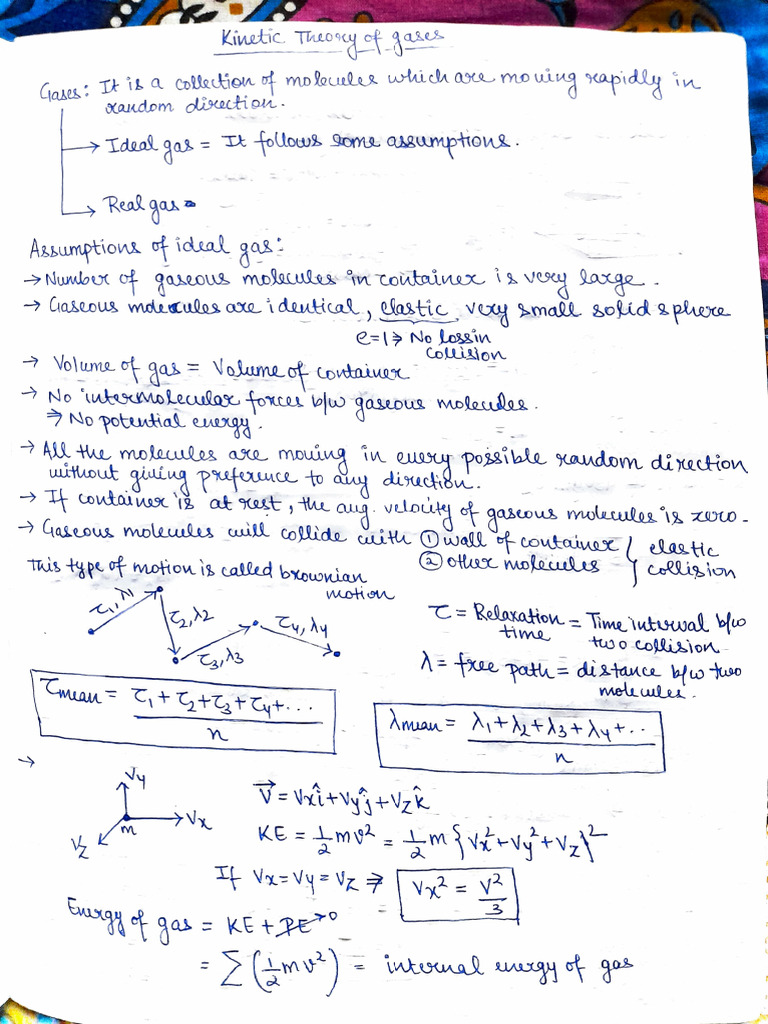 Kinetic Theory of gases
Gases: It is a collection of molecules which are moving rapidly in
random direction.
→ Ideal gas = It follows some assumptions.
→ Real gas =
Assumptions of ideal gas:
→ Number of gaseous molecules in container is very large.
→ Gaseous molecules are identical, elastic very small solid sphere
e=1 ⇒ No loss in
collision
→ Volume of gas = Volume of container
→ No intermolecular forces b/w gaseous molecules.
⇒ No potential energy.
→ All the molecules are moving in every possible random direction
without giving preference to any direction.
→ If container is at rest, the avg. velocity of gaseous molecules is zero.
→ Gaseous molecules will collide with ① wall of container } elastic
② other molecules } collision
This type of motion is called brownian
motion
τ1, λ1
τ2, λ2
τ3, λ3
τ4, λ4
τ = Relaxation time = Time interval b/w
two collision
λ = free path = distance b/w two
molecules.
τmean = τ1 + τ2 + τ3 + τ4 + ... / n
λmean = λ1 + λ2 + λ3 + λ4 + .. / n
→
Vy
Vx
Vz
m
V⃗ = Vxî + Vyĵ + Vzk̂
KE = 1/2 mv² = 1/2 m {Vx² + Vy² + Vz}²
If Vx = Vy = Vz ⇒ Vx² = V²/3
Energy of gas = KE + PE→0
= ∑ (1/2 m v²) = internal energy of gas